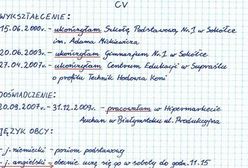 CV
WYKSZTAŁCENIE:
15.06.2000r. - ukończyłam Szkołę Podstawową Nr 1 w Sokółce
im. Adama Mickiewicza
20.06.2003r. - ukończyłam Gimnazjum Nr 1 w Sokółce
27.04.2007r. - ukończyłam Centrum Edukacji w Supraślu
o profilu Technik Hodowca Koni
DOŚWIADCZENIE:
30.09.2007r. - 31.12.2009r. - pracowałam w Hipermarkecie
Auchan w Białymstoku ul. Produkcyjna
JĘZYK OBCY:
- j. niemiecki - poziom podstawowy
- j. angielski - obecnie uczę się go w soboty do godz. 11.15